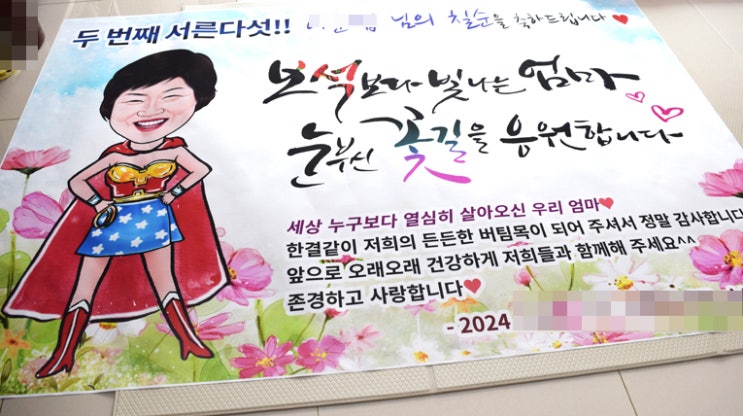 두 번째 서른다섯!!
님의 칠순을 축하드립니다♥
보석보다 빛나는 엄마
눈부신 꽃길을 응원합니다
세상 누구보다 열심히 살아오신 우리 엄마♥
한결같이 저희의 든든한 버팀목이 되어 주셔서 정말 감사합니다
앞으로 오래오래 건강하게 저희들과 함께해 주세요^^
존경하고 사랑합니다♥
- 2024